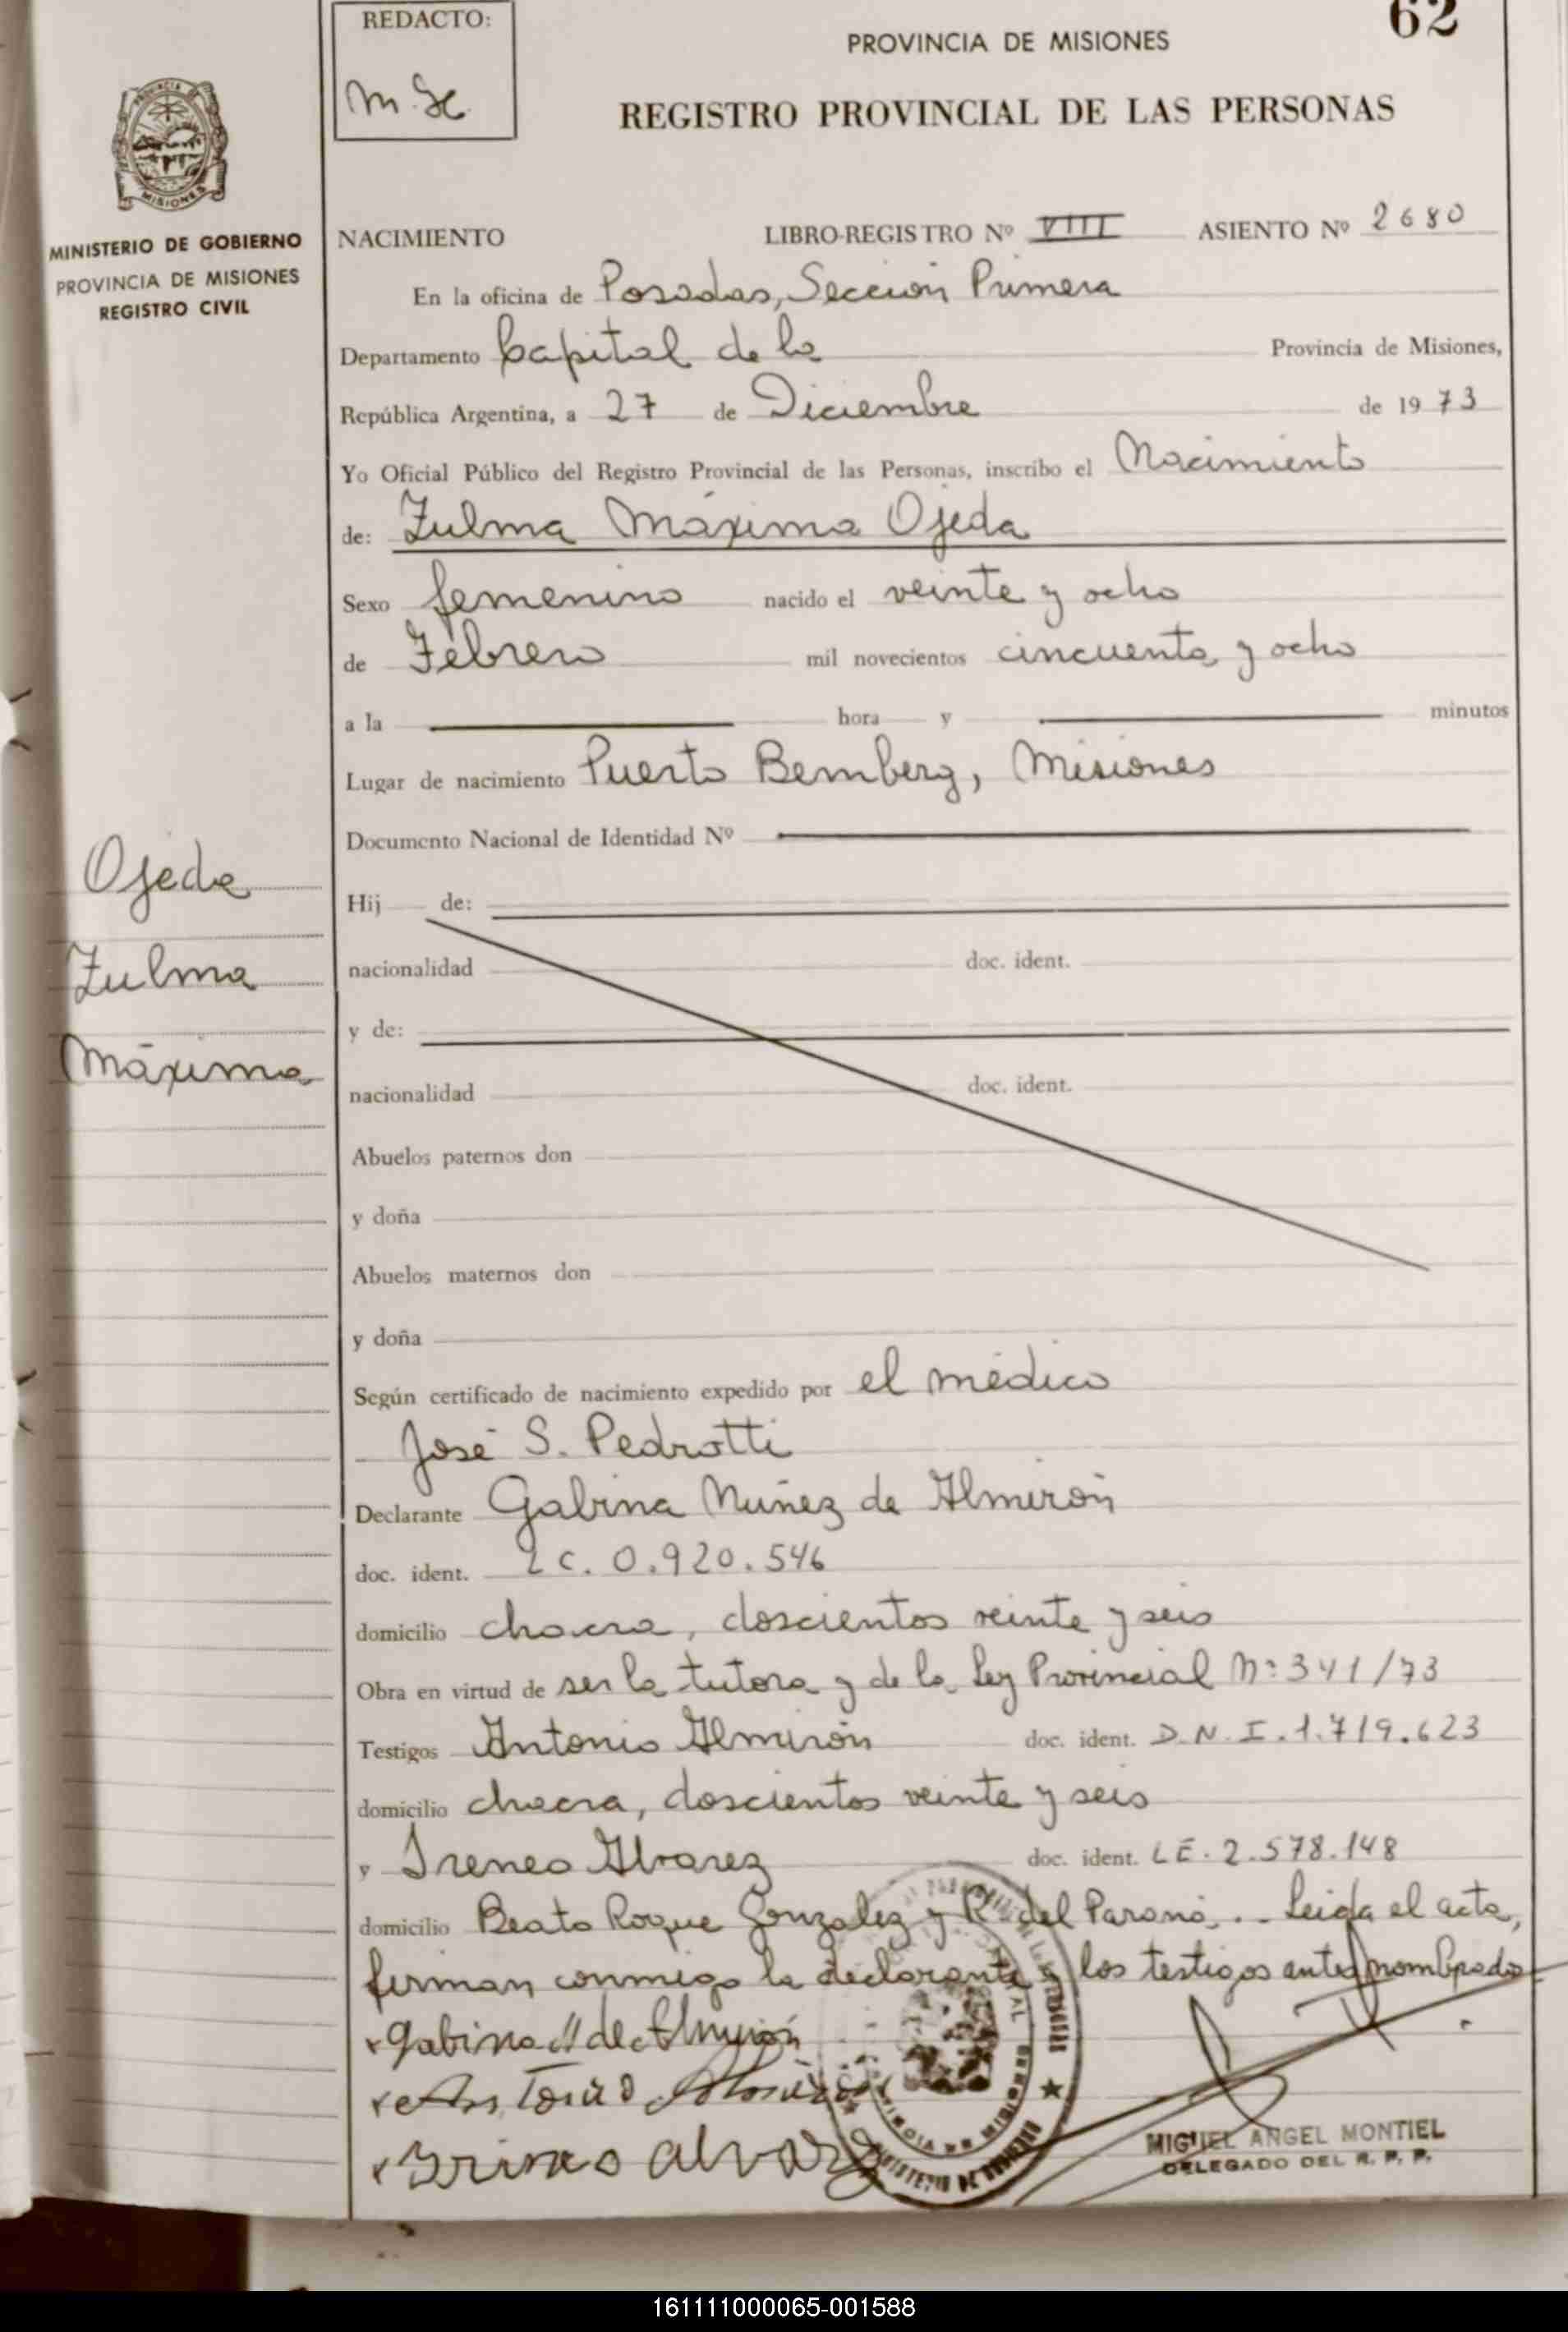 REDACTO:
M. Sc.
62
PROVINCIA DE MISIONES
REGISTRO PROVINCIAL DE LAS PERSONAS
MISIONES
MINISTERIO DE GOBIERNO
PROVINCIA DE MISIONES
REGISTRO CIVIL
NACIMIENTO LIBRO-REGISTRO Nº VIII ASIENTO Nº 2680
En la oficina de Posadas, Sección Primera
Departamento Capital de la Provincia de Misiones,
República Argentina, a 27 de Diciembre de 1973
Yo Oficial Público del Registro Provincial de las Personas, inscribo el Nacimiento
de: Zulma Máxima Ojeda
Sexo femenino nacido el veinte y ocho
de Febrero mil novecientos cincuenta y ocho
a la hora y minutos
Lugar de nacimiento Puerto Bemberg, Misiones
Documento Nacional de Identidad Nº
Ojeda
Zulma
Máxima
Hij de:
nacionalidad doc. ident.
y de:
nacionalidad doc. ident.
Abuelos paternos don
y doña
Abuelos maternos don
y doña
Según certificado de nacimiento expedido por el médico
José S. Pedrotti
Declarante Gabina Nuñez de Almirón
doc. ident. LC. 0.920.546
domicilio chacra, doscientos veinte y seis
Obra en virtud de ser la tutora y de la Ley Provincial Nº 341/73
Testigos Antonio Almirón doc. ident. D.N.I. 1.719.623
domicilio chacra, doscientos veinte y seis
y Ireneo Alvarez doc. ident. LE. 2.578.148
domicilio Beato Roque Gonzalez y R. del Paraná... Leida el acta,
firman conmigo la declarante y los testigos antes nombrados
Gabina N de Almirón
Antonio Almirón
alvarez
MIGUEL ANGEL MONTIEL
DELEGADO DEL R. P. P.
161111000065-001588